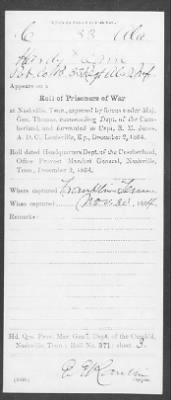 C 33 Ala
Hardy
Appears on a
Roll of Prisoners of War
at Nashville, Tenn., captured by forces under Maj.
Gen. Thomas, commanding Dept. of the Cum-
berland, and forwarded to Capt. S. E. Jones,
A. D. C., Louisville, Ky., December 2, 1864.
Roll dated Headquarters Dept. of the Cumberland,
Office Provost Marshal General, Nashville,
Tenn., December 2, 1864.
Where captured Franklin Tenn
When captured Nov 30, 1864.
Remarks:
Hd. Qrs. Prov. Mar. Gen'l. Dept. of the Cumb'ld,
Nashville, Tenn.; Roll No. 371; sheet 3.
Copyist.